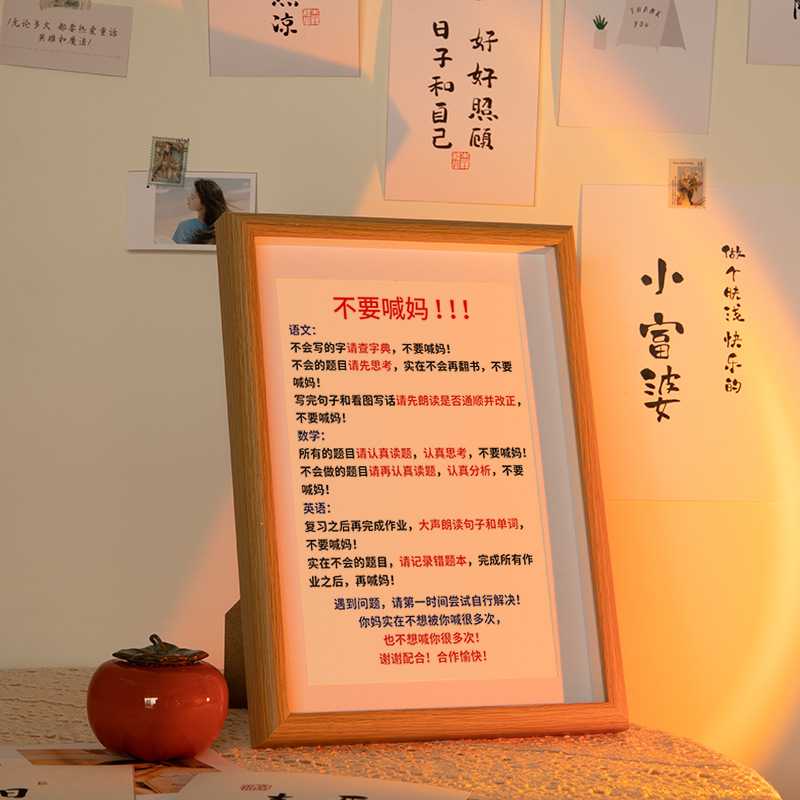 无论多大 都要热爱童话
英雄和魔法
好好照顾
日子和自己
THANK
YOU
小富婆
做个肤浅快乐的
不要喊妈！！！
语文：
不会写的字请查字典，不要喊妈！
不会的题目请先思考，实在不会再翻书，不要
喊妈！
写完句子和看图写话请先朗读是否通顺并改正，
不要喊妈！
数学：
所有的题目请认真读题，认真思考，不要喊妈！
不会做的题目请再认真读题，认真分析，不要
喊妈！
英语：
复习之后再完成作业，大声朗读句子和单词，
不要喊妈！
实在不会的题目，请记录错题本，完成所有作
业之后，再喊妈！
遇到问题，请第一时间尝试自行解决！
你妈实在不想被你喊很多次，
也不想喊你很多次！
谢谢配合！合作愉快！